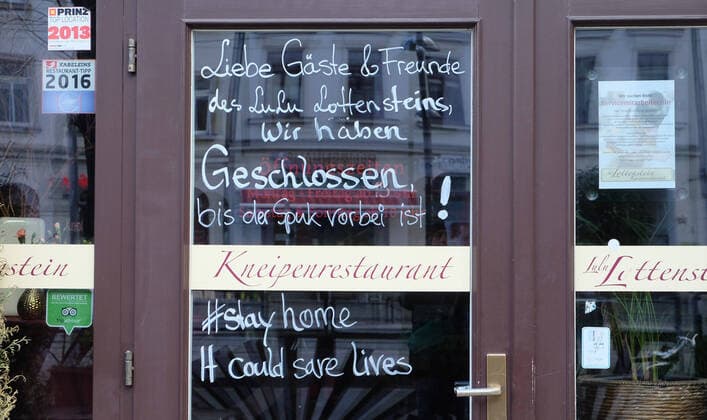 PRINZ
TOP LOCATION
2013
RESTAURANT-TIPP
2016
nstein
BEWERTET
Liebe Gäste & Freunde
des LuLu Lottensteins,
Wir haben
Geschlossen,
bis der Spuk vorbei ist!
Kneipenrestaurant
#stay home
It could save lives
Lulu Lottenst